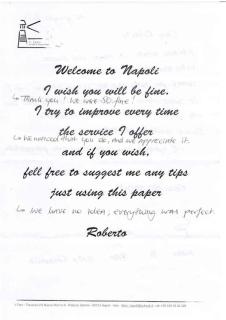 Welcome to Napoli
I wish you will be fine.
↳ Thank you! We were SO fine!
I try to improve every time
the service I offer
↳ We noticed that you do, and we appreciate it
and if you wish,
fell free to suggest me any tips
just using this paper
↳ We have no idea, everything was perfect
Roberto